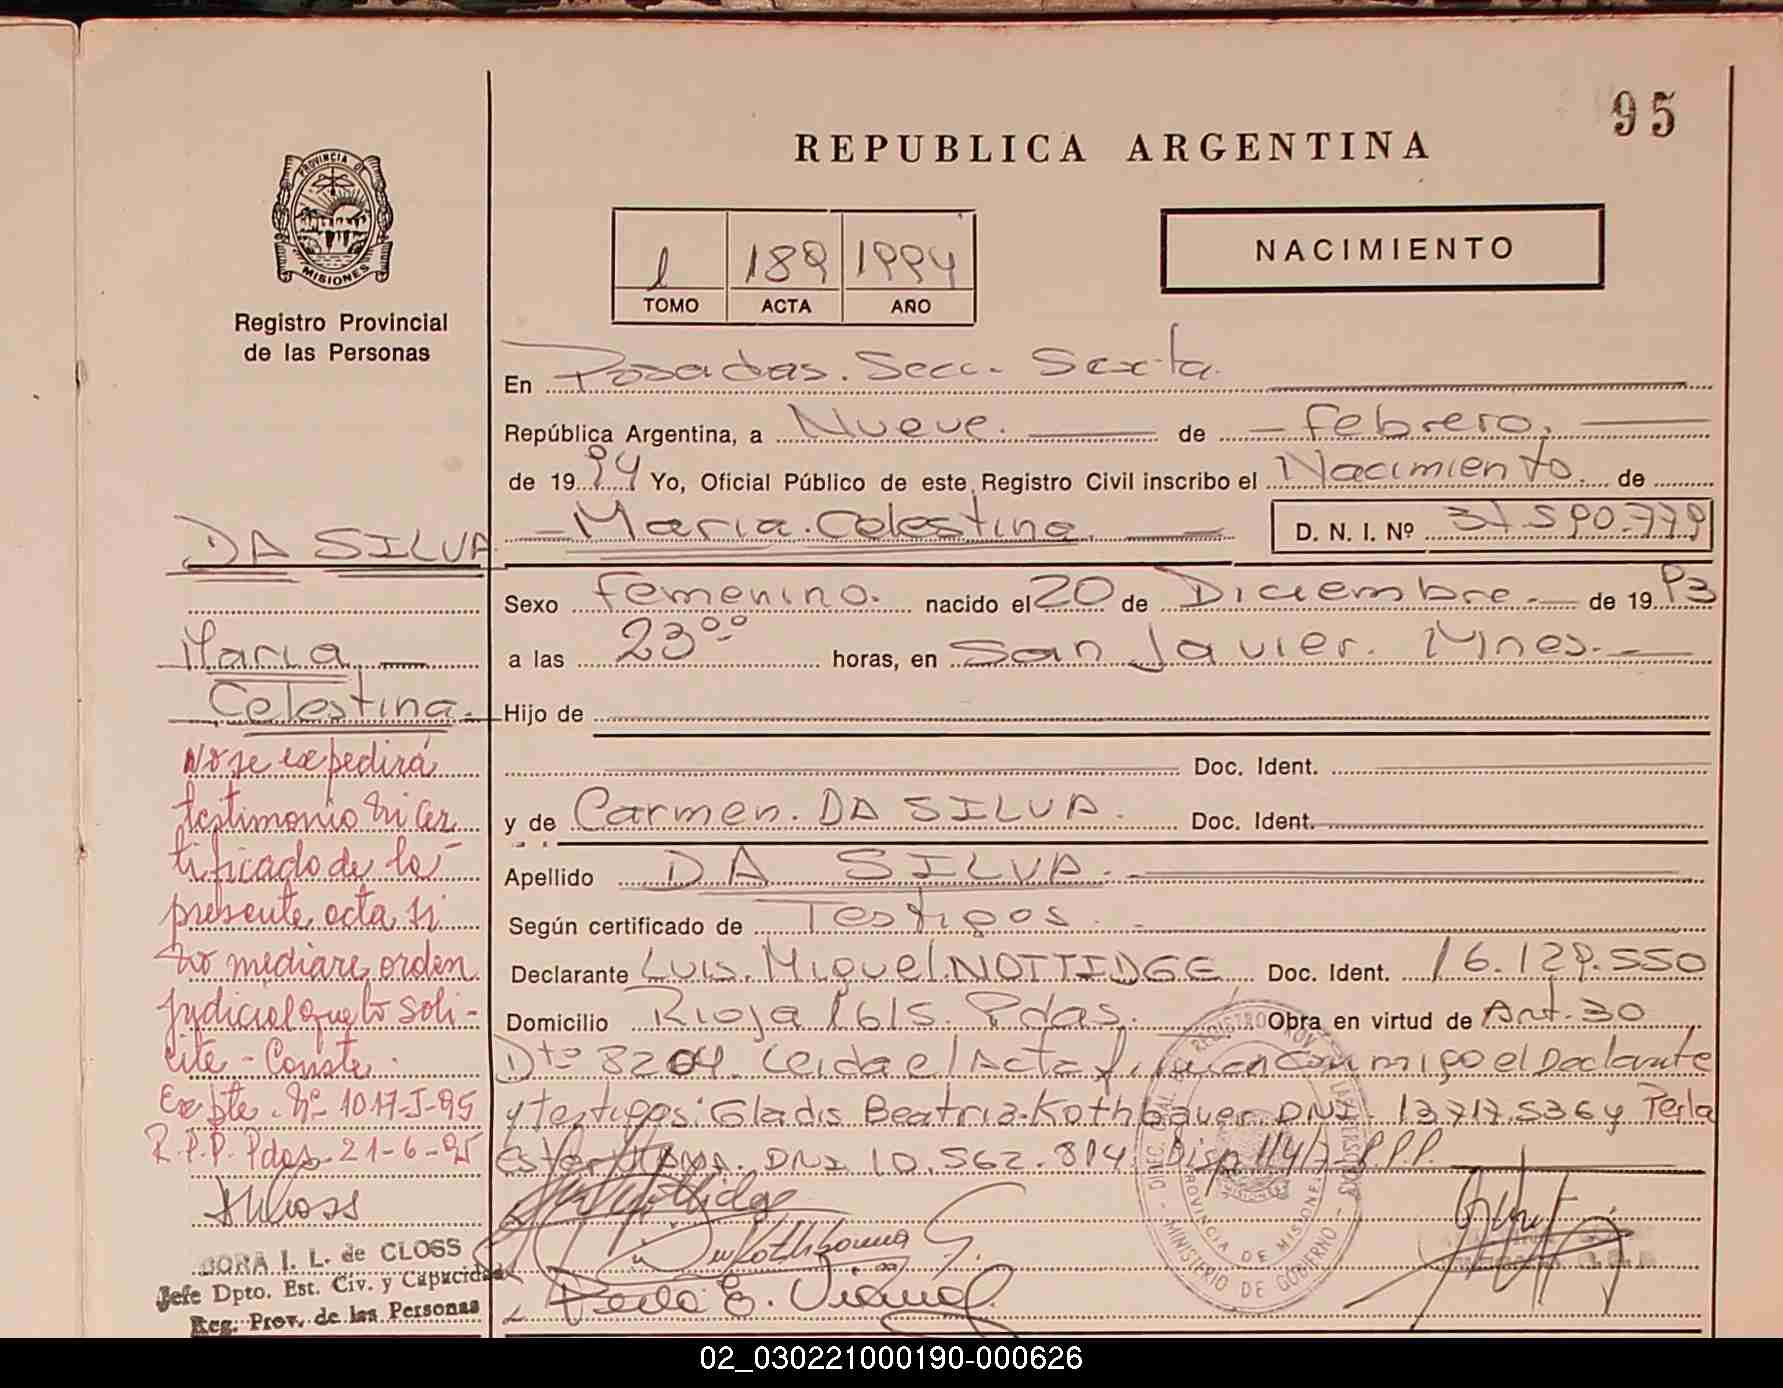 95
REPUBLICA ARGENTINA
PROVINCIA DE
MISIONES
Registro Provincial
de las Personas
1 189 1994
TOMO ACTA AÑO
NACIMIENTO
En Posadas. Secc. Sexta.
República Argentina, a Nueve. de Febrero.
de 1994 Yo, Oficial Público de este Registro Civil inscribo el Nacimiento. de
Maria. Celestina. D. N. I. Nº 37.590.779
Sexo Femenino. nacido el 20 de Diciembre. de 1993
a las 23⁰⁰ horas, en San Javier. Mnes.
Hijo de
Doc. Ident.
y de Carmen. DA SILVA. Doc. Ident.
Apellido DA SILVA.
Según certificado de Testigos.
Declarante Luis. Miguel. NOTTIDGE Doc. Ident. 16.129.550
Domicilio Rioja 1615. Pdas. Obra en virtud de Art. 30
Dto 8204. Leida el Acta firman conmigo el Declarante
y testigos: Gladis Beatriz Kothbauer DNI. 13.717.536 y Perla
Ester DNI 10.562.814. Disp 114/ R.P.P.
DA SILVA
Maria
Celestina.
No se expedirá
testimonio ni cer
tificado de la
presente acta si
no mediare orden
Judicial que lo soli-
cite - Conste.
Expte. Nº 1017-J-95
R.P.P. Pdas. 21-6-95
I. L. de CLOSS
Jefe Dpto. Est. Civ. y Capacidad
Reg. Prov. de las Personas
PROVINCIA DE MISIONES
MINISTERIO DE GOBIERNO
02_030221000190-000626